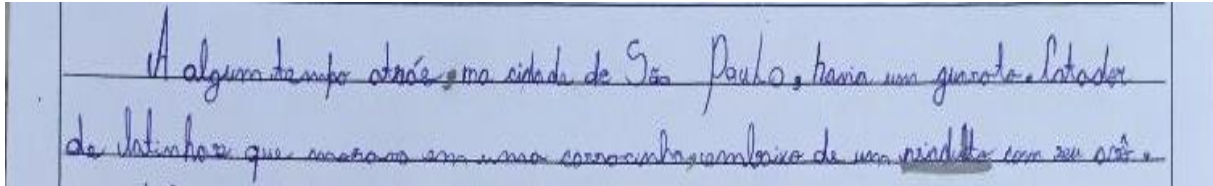 A algum tempo atrás, na cidade de São Paulo, havia um garoto. Catador
de latinhas que morava em uma carrocinha, embaixo de um viaduto com seu avô.